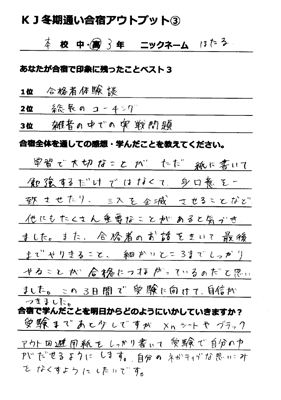 KJ冬期通い合宿アウトプット③
本 校 中・高 3年 ニックネーム はたる
あなたが合宿で印象に残ったことベスト3
1位 合格者体験談
2位 総長のコーチング
3位 雑音の中での実戦問題
合宿全体を通しての感想・学んだことを教えてください。
学習で大切なことが ただ 紙に書いて
勉強するだけではなくて、身口意を一
致させたり、三人を全滅させることなど
他にもたくさん重要なことがあると気づき
ました。また、合格者のお話をきいて最後
までやりきること、細かいところまでしっかり
やることが合格につながっているのだと思い
ました。この3日間で受験に向けて、自信が
つきました。
合宿で学んだことを明日からどのようにいかしていきますか?
受験まであと少しですが Xnシートやブラック
アウト回避用紙をしっかり書いて受験で自分の力
がだせるようにします。自分のネガティブな思いこみ
をなくすようにしたいです。